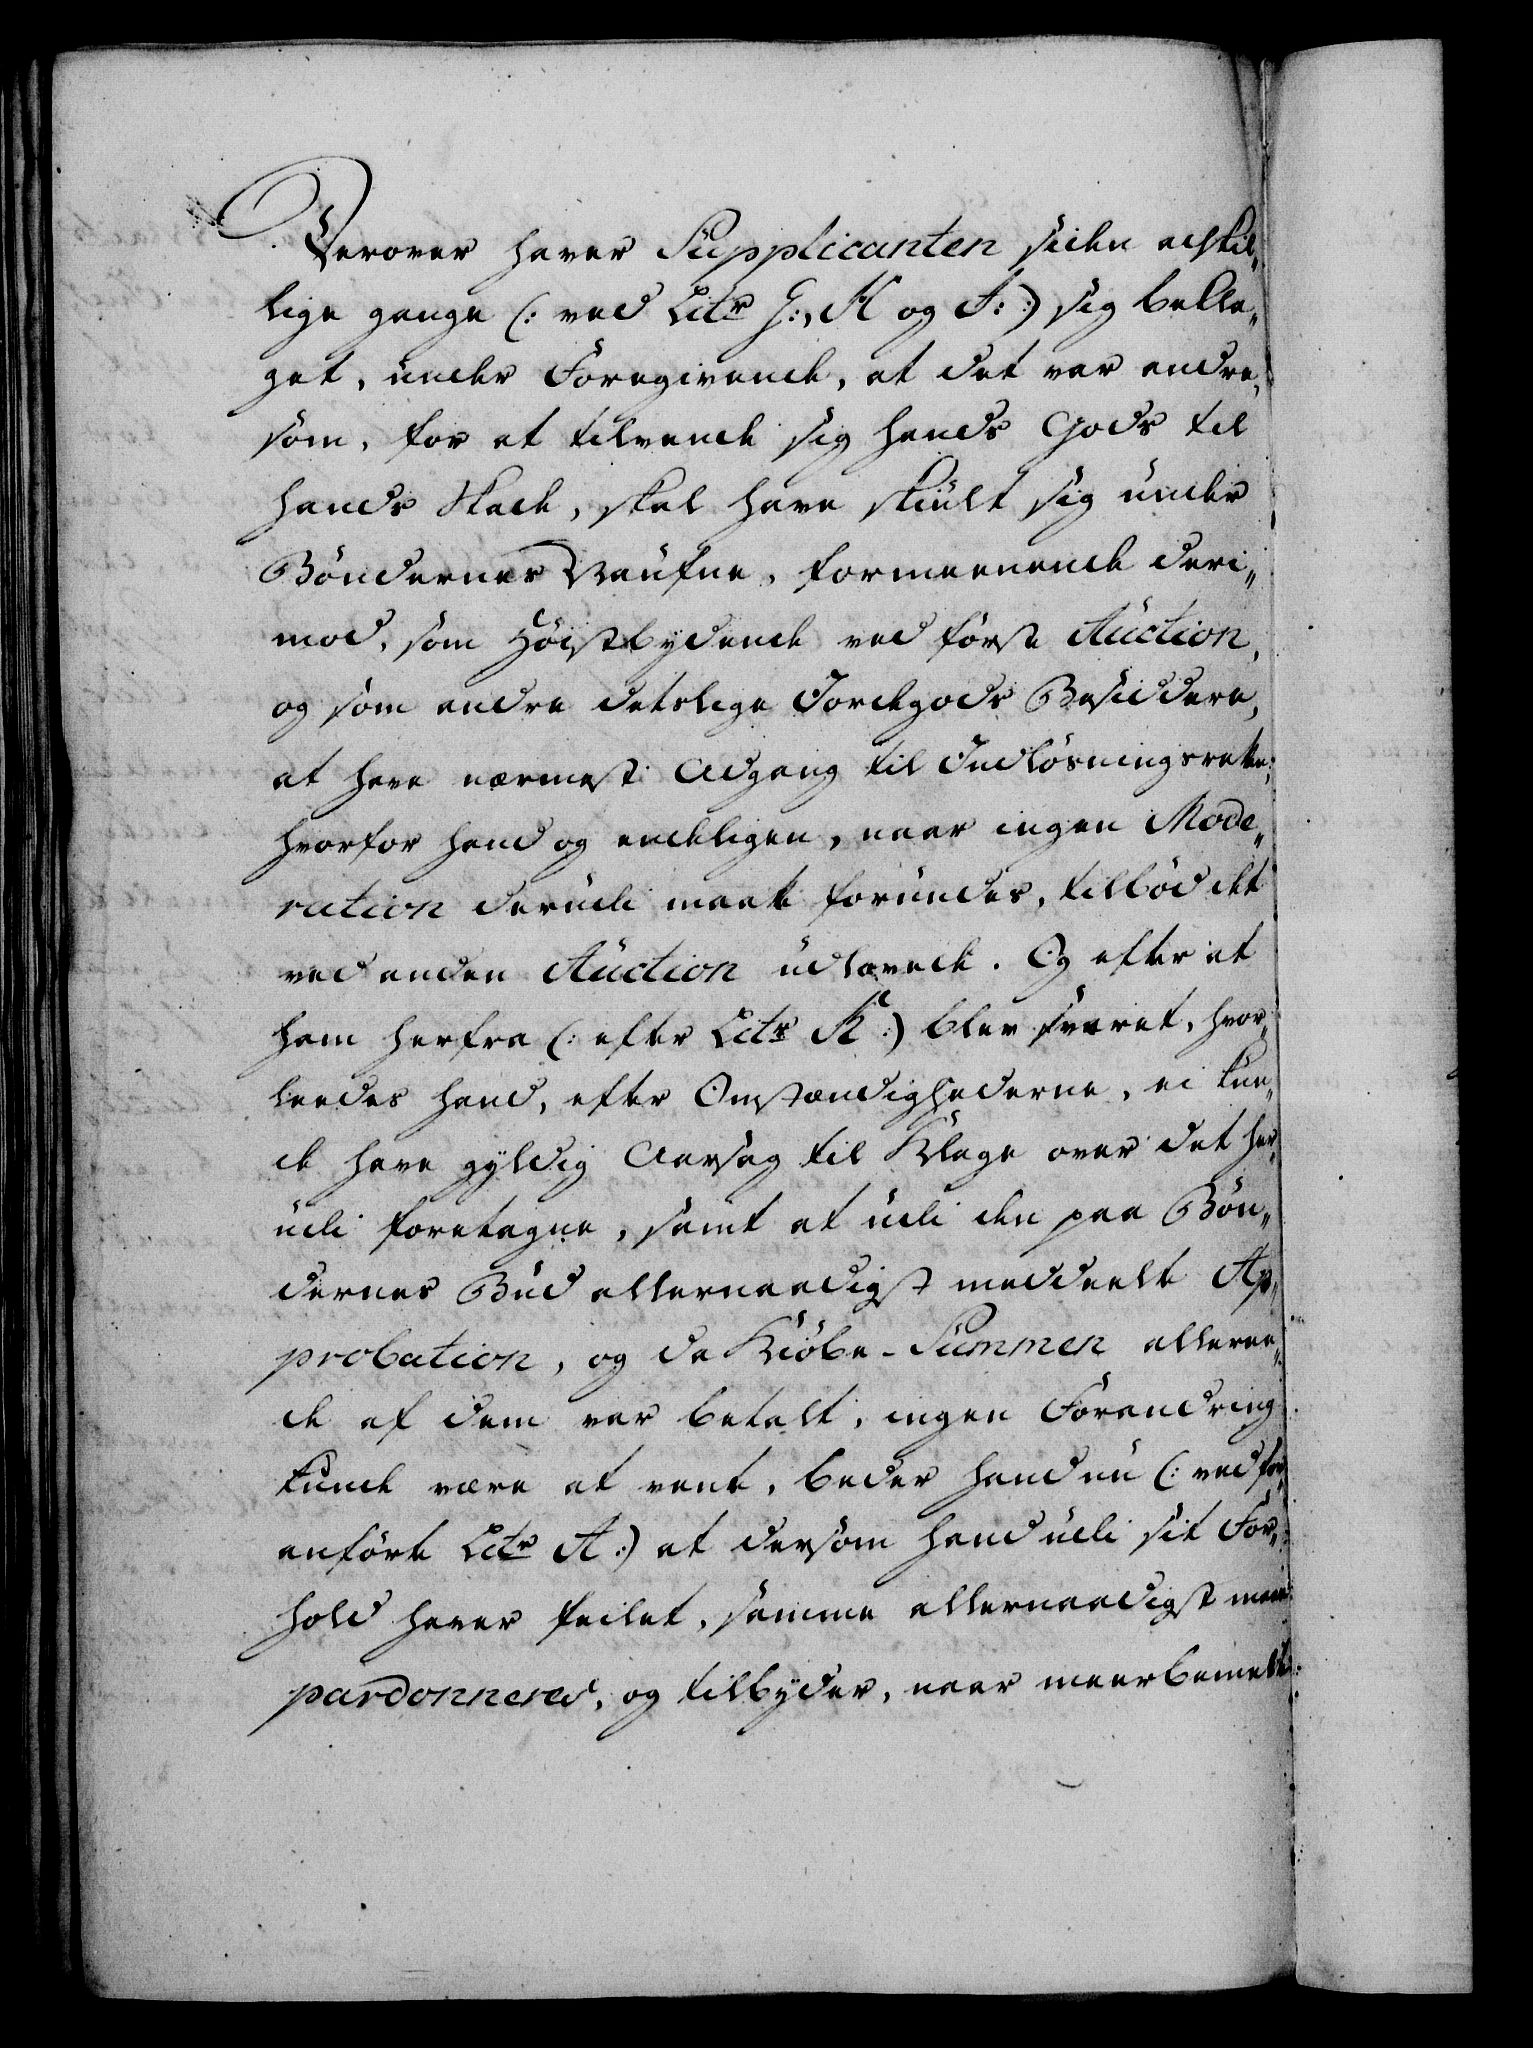 Derover haver Supplicanten siden adskil„
lige gange (: ved Litr G:, H og I: :) sig bekla„
get, under Foregivende, at det var andre,
som, for at tilvende sig hands Gods til
hands Skade, skal have skiult sig under
Bøndernes Naufne, formeenende deri„
mod, som Høistbydende ved første Auction,
og som andre detslige Jordegods Besiddere,
at have nærmest Adgang til Indløsningsretten;
hvorfor hand og endeligen, naar ingen Mode„
ration derudi maatte forundes, tilbød det
ved anden Auction udlovede. Og efter at
ham herfra (: efter Litr K :) blev svaret, hvor„
leedes hand, efter Omstændighederne, ei kun„
de have gyldig Aarsag til Klage over det her„
udi foretagne, samt at udi den paa Bøn„
dernes Bud allernaadigst meddeelte Ap„
probation, og da Kiøbe-Summen allere„
de af dem var betalt, ingen Forandring
kunde være at vente, beder hand nu (: ved for„
anførte Litr A :) at dersom hand udi sit For„
hold haver feilet, samme allernaadigst maae
pardonneres, og tilbyder, naar meerbemelte